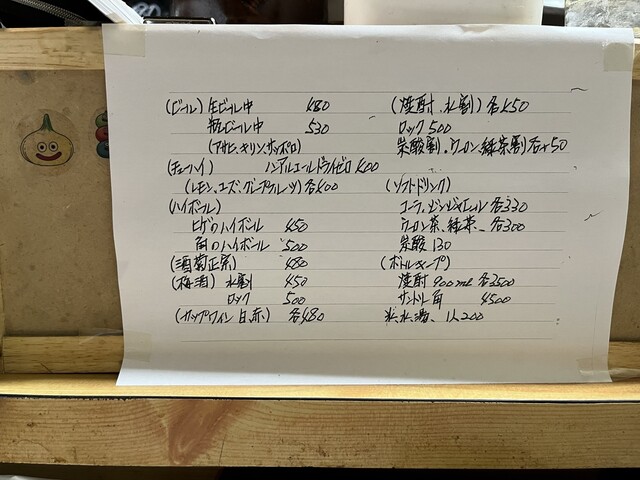 (ビール) 生ビール中 480
瓶ビール中 530
(アサヒ、キリン、サッポロ)
(チューハイ) ノンアルエールドライゼロ 400
(レモン、ユズ、グレープフルーツ) 各400
(ハイボール)
ヒゲのハイボール 450
角のハイボール 500
(酒菊正宗) 480
(梅酒) 水割 450
ロック 500
(カップワイン 白、赤) 各480
(焼酎、水割) 各450
ロック 500
炭酸割、ウーロン、緑茶割 各+50
(ソフトドリンク)
コーラ、ジンジャエール 各330
ウーロン茶、緑茶、各300
炭酸 130
(ボトルキープ)
焼酎 900ml 各3500
サントリー角 4500
氷、水、湯、1人200